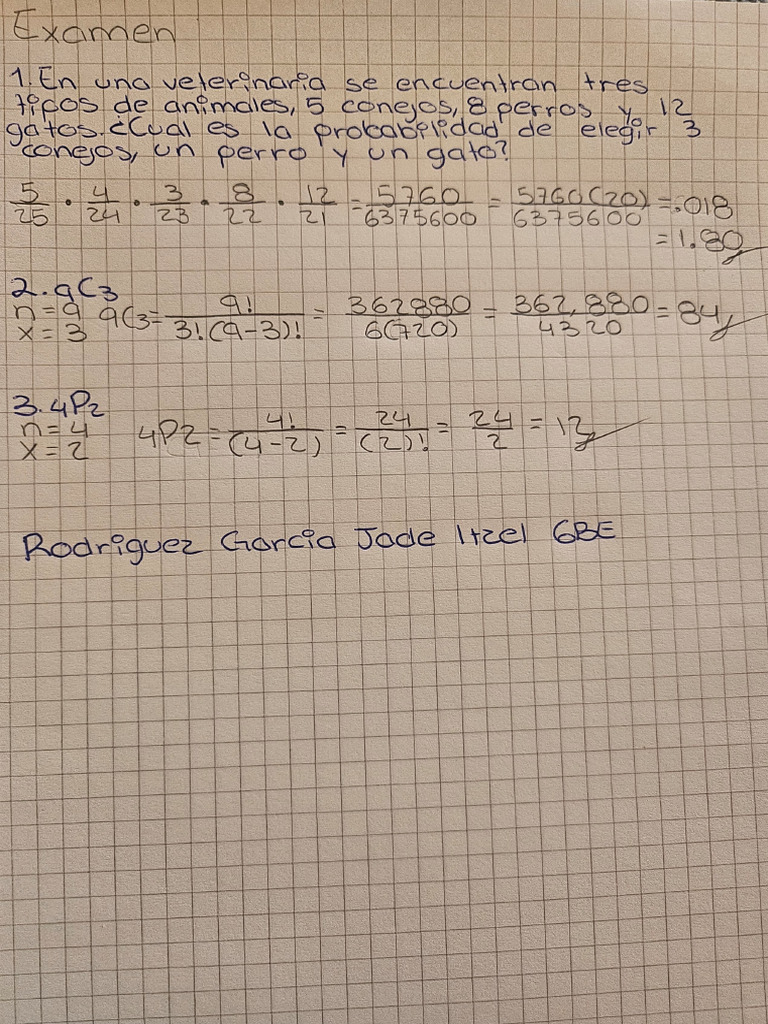 Examen
1. En una veterinaria se encuentran tres
tipos de animales, 5 conejos, 8 perros y 12
gatos. ¿Cual es la probabilidad de elegir 3
conejos, un perro y un gato?
5/25 · 4/24 · 3/23 · 8/22 · 12/21 = 5760/6375600 = 5760(20)/6375600 = .018
= 1.80
2. 9C3
n = 9 9C3 = 9!/3!(9-3)! = 362880/6(720) = 362,880/4320 = 84
x = 3
3. 4P2
n = 4 4P2 = 4!/(4-2) = 24/(2)! = 24/2 = 12
x = 2
Rodriguez Garcia Jade Itzel 6BE